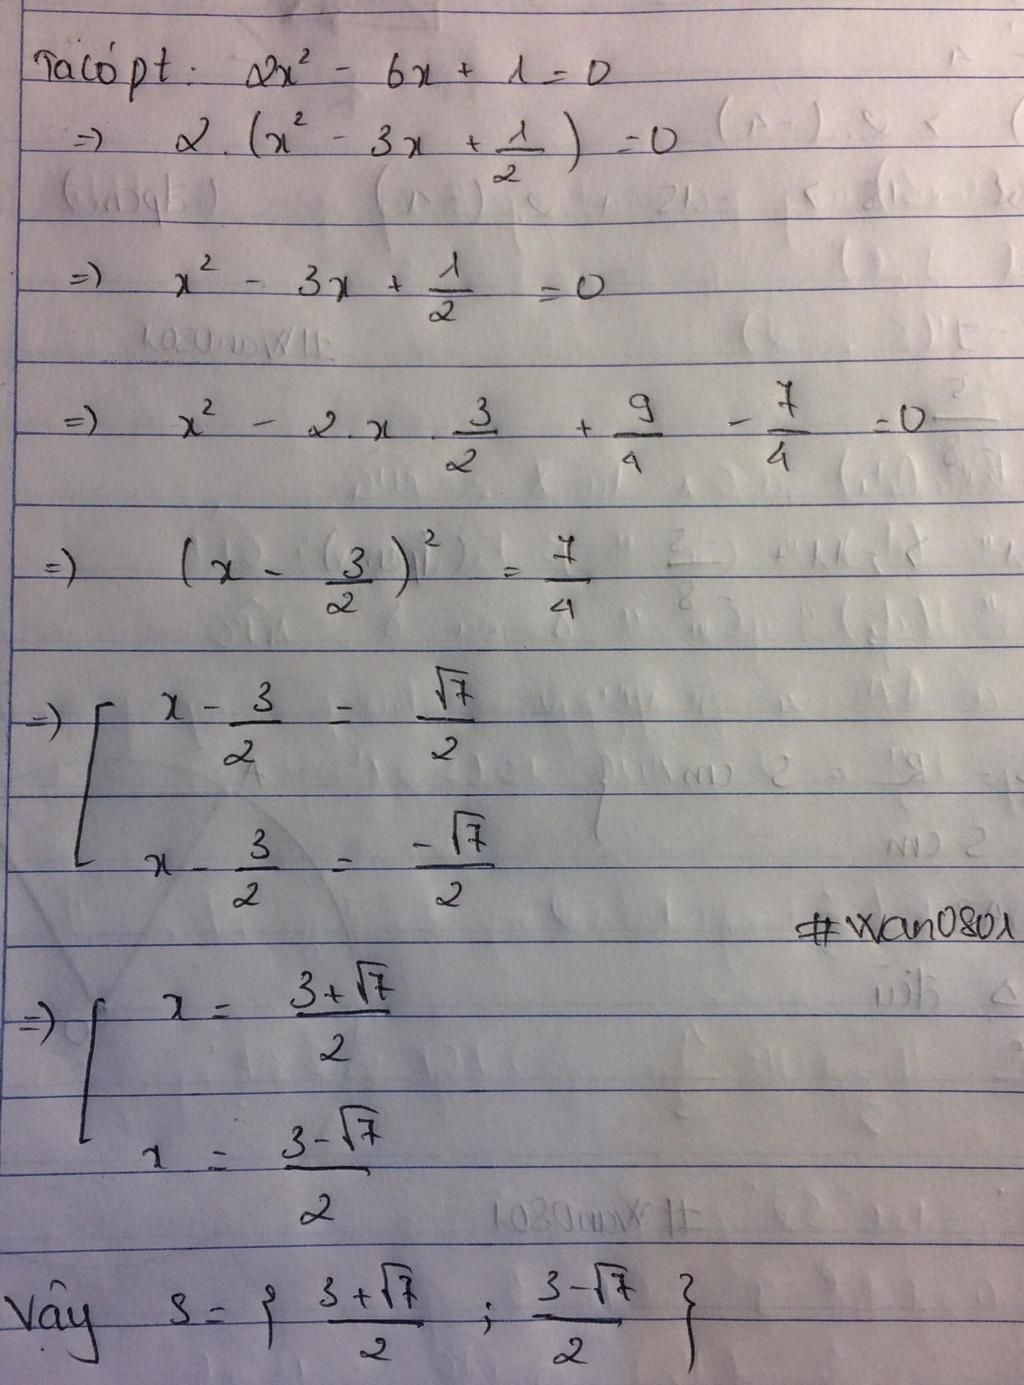 Ta có pt: 2x² - 6x + 1 = 0
=) 2.(x² - 3x + 1/2) = 0
=) x² - 3x + 1/2 = 0
=) x² - 2.x.3/2 + 9/4 - 7/4 = 0
=) (x - 3/2)² = 7/4
=) [ x - 3/2 = √7/2
x - 3/2 = -√7/2
#Wan0801
=) [ x = (3+√7)/2
x = (3-√7)/2
Vậy S = { (3+√7)/2 ; (3-√7)/2 }